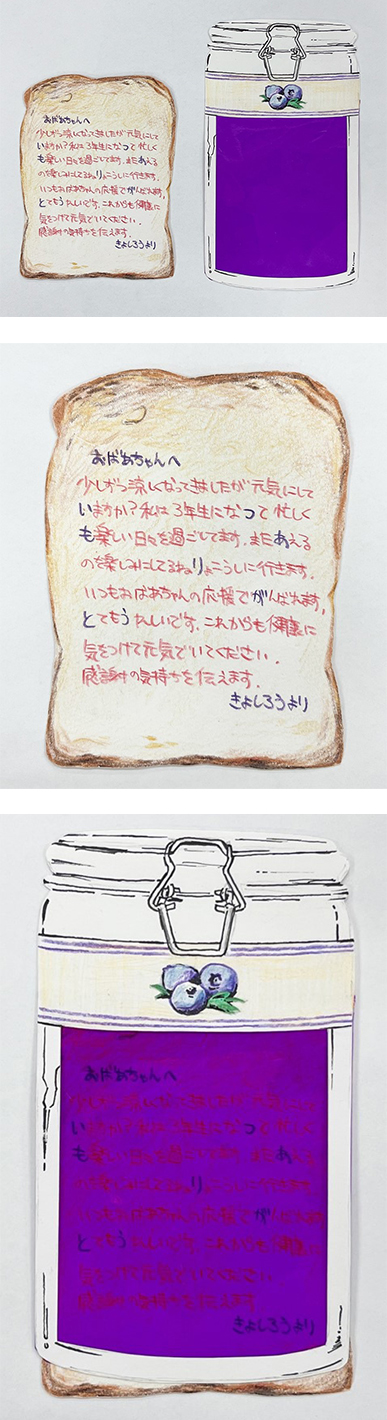 おばあちゃんへ
少しずつ涼しくなって来ましたが元気にして
いますか?私は3年生になって忙しく
も楽しい日々を過ごしてます。またあえる
のを楽しみにしてるねりょこうしに行きます。
いつもおばあちゃんの応援でがんばれます。
とてもうれしいです。これからも健康に
気をつけて元気でいてください。
感謝の気持ちを伝えます。
きよしろうより
おばあちゃんへ
少しずつ涼しくなって来ましたが元気にして
いますか?私は3年生になって忙しく
も楽しい日々を過ごしてます。またあえる
のを楽しみにしてるねりょこうしに行きます。
いつもおばあちゃんの応援でがんばれます。
とてもうれしいです。これからも健康に
気をつけて元気でいてください。
感謝の気持ちを伝えます。
きよしろうより
おばあちゃんへ
少しずつ涼しくなって来ましたが元気にして
いますか?私は3年生になって忙しく
も楽しい日々を過ごしてます。またあえる
のを楽しみにしてるねりょこうしに行きます
いつもおばあちゃんの応援でがんばれます
とてもうれしいです。これからも健康に
気をつけて元気でいてください
感謝の気持ちを伝えます
きよしろうより